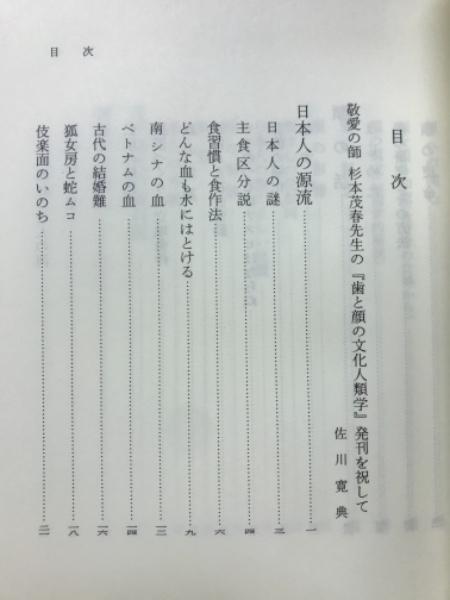 目次
目次
敬愛の師 杉本茂春先生の『歯と顔の文化人類学』発刊を祝して
佐川寛典
日本人の源流……一
日本人の謎……三
主食区分説……四
食習慣と食作法……六
どんな血も水にはとける……九
南シナの血……一三
ベトナムの血……一四
古代の結婚難……一六
狐女房と蛇ムコ……一八
伎楽面のいのち……二一